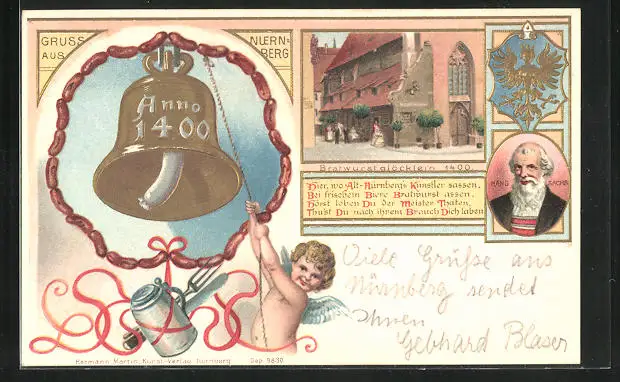 GRUSS AUS
NUERNBERG
Anno
1400
Bratwurstglöcklein 1400.
Hier, wo Alt-Nürnbergs Künstler sassen,
Bei frischem Biere Bratwurst assen,
Hörst loben Du der Meister Thaten,
Thu'st Du nach ihrem Brauch Dich laben
HANS SACHS
Viele Grüße aus
Nürnberg sendet
Ihnen
Gebhard Blaser
Hermann Martin, Kunst-Verlag, Nürnberg. Dep. 9830